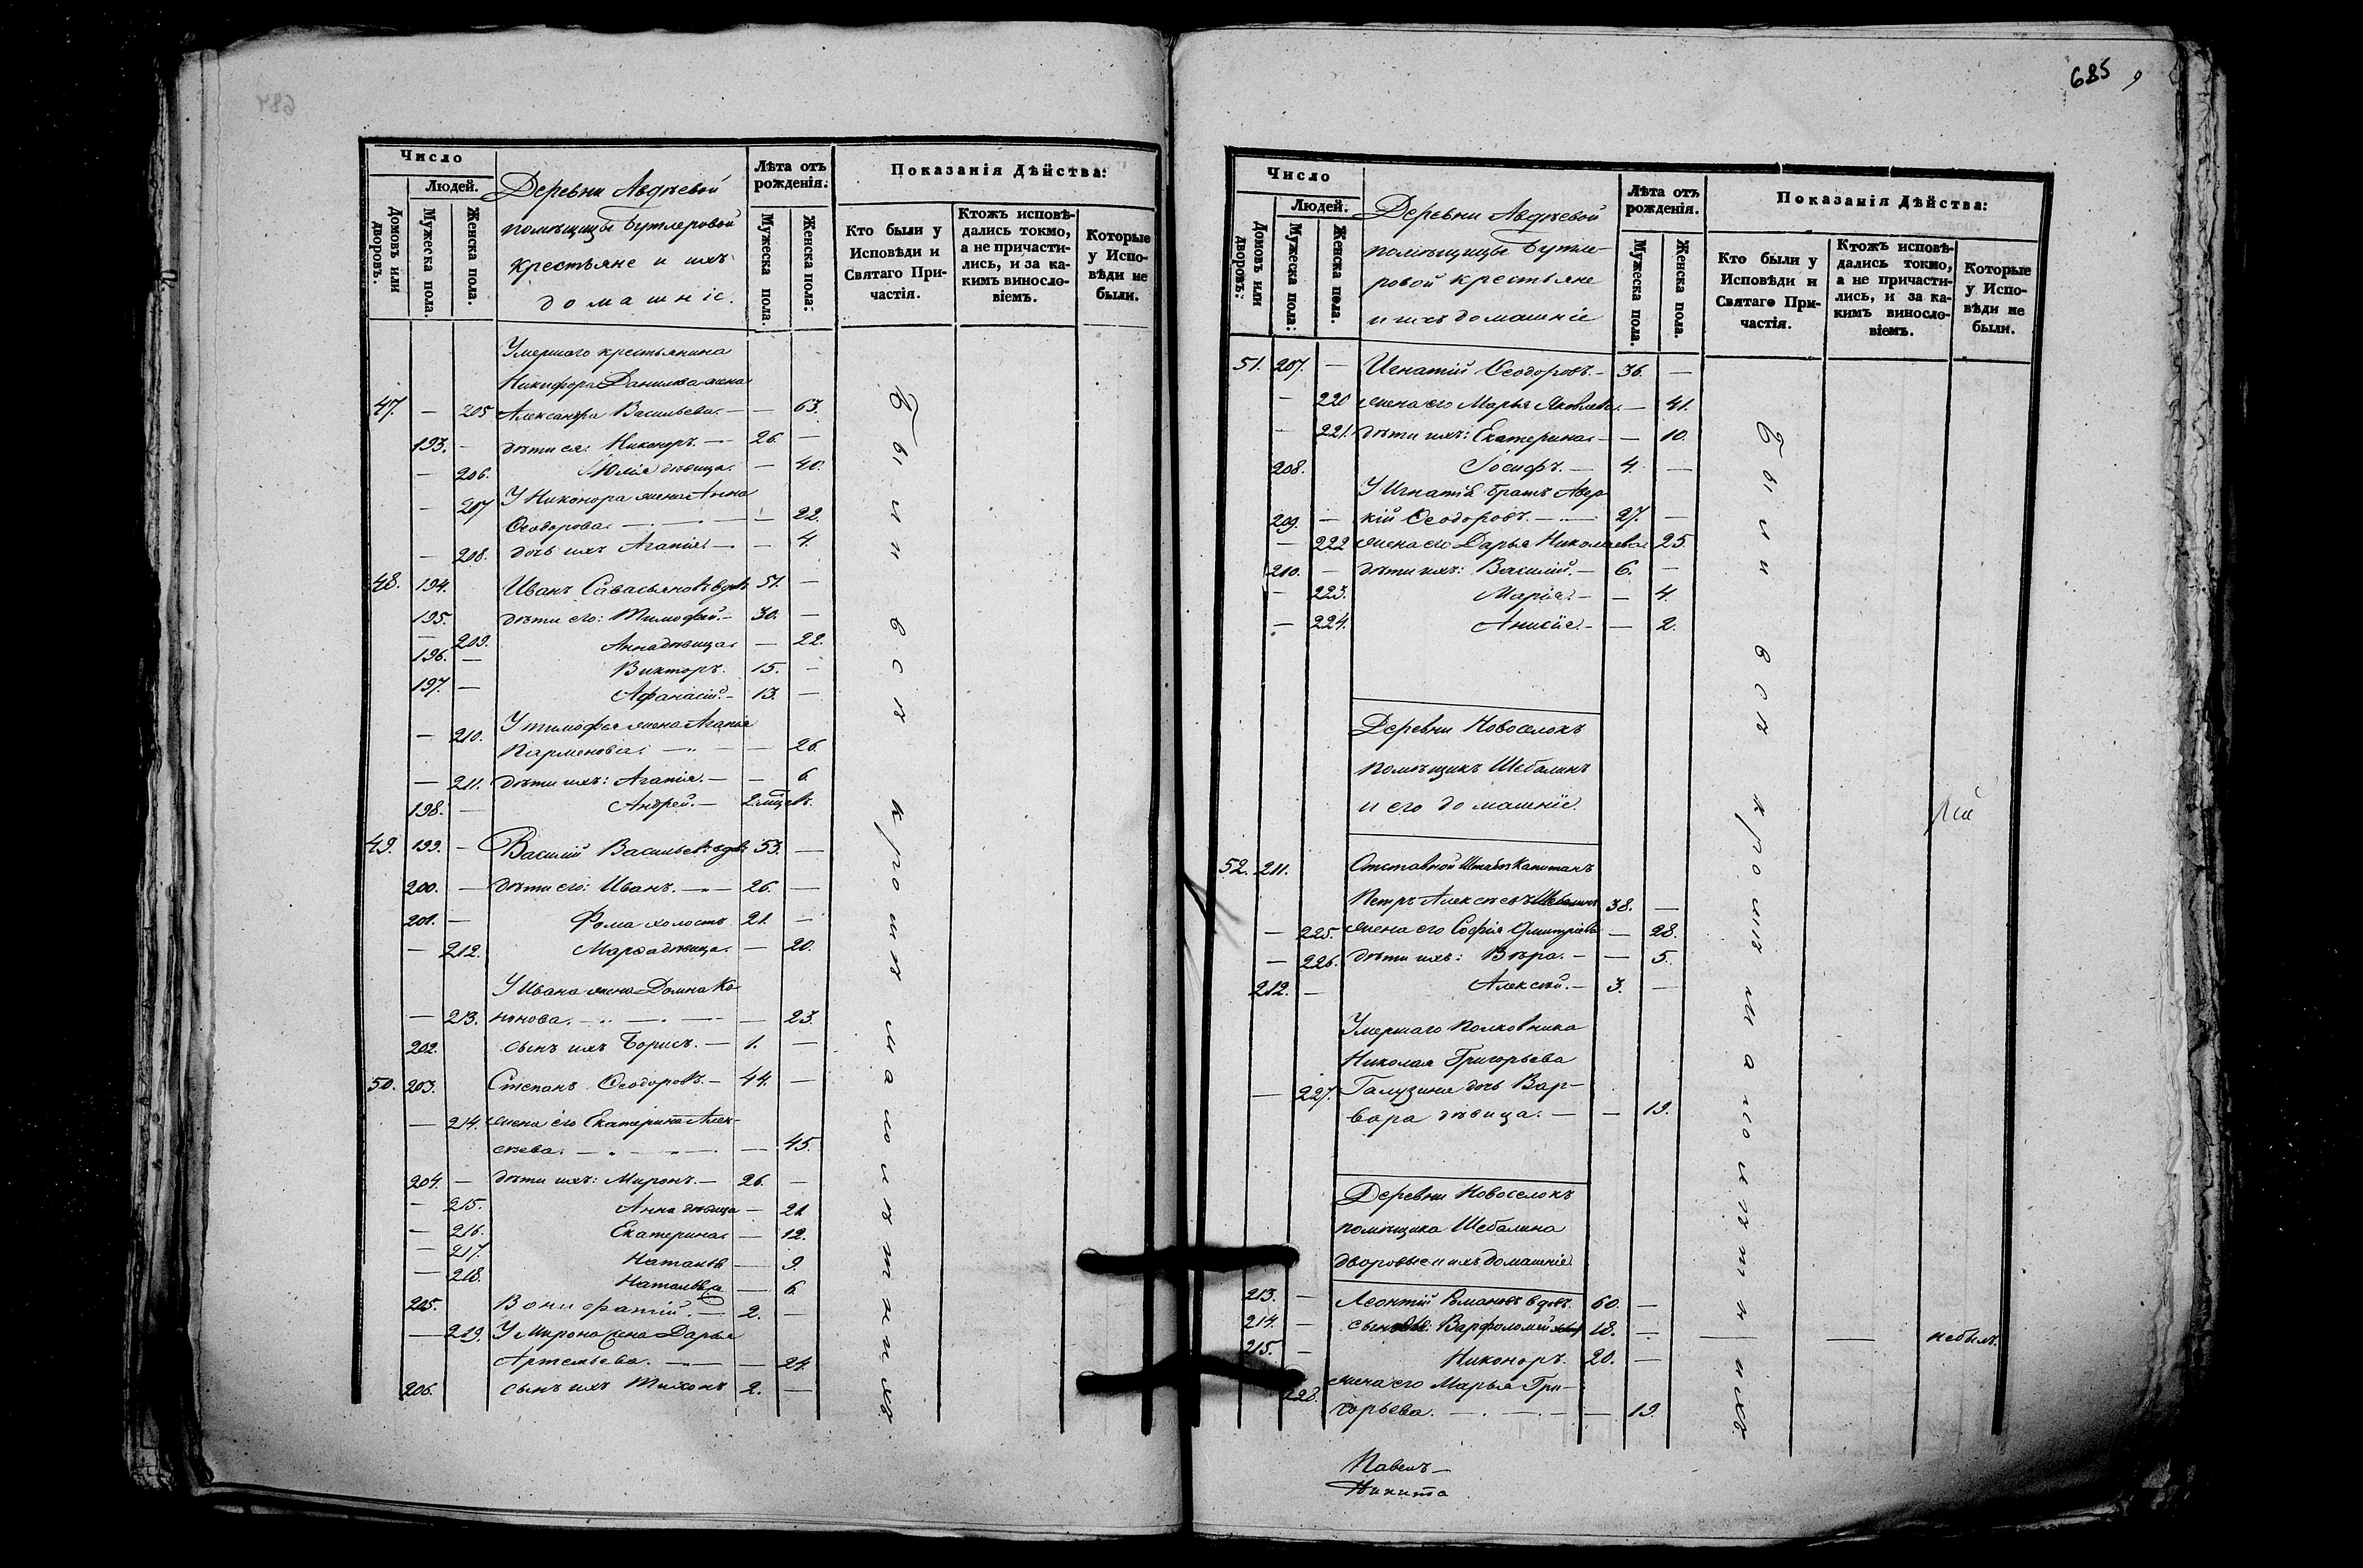 Число
Людей.
Домовъ или дворовъ.
Мужеска пола.
Женска пола.
Деревни Авдѣевой
помѣщицы Бутлеровой
крестьяне и ихъ
домашніе.
Лѣта отъ рожденія.
Мужеска пола.
Женска пола:
Показанія Дѣйства:
Кто были у Исповѣди и Святаго Причастія.
Ктожъ исповѣдались токмо, а не причастились, и за какимъ винословіемъ.
Которые у Исповѣди не были.
Умершаго крестьянина
Никифора Данилова жена
47. — 205 Александра Васильева. — — 63.
193. — дѣти ея: Никоноръ. — 26 —
— 206. Юлія дѣвица. — 40.
— 207 У Никонора жена Анна
Ѳеодорова. — — 22.
— 208. дочь ихъ Агапія. — — 4.
48. 194. Иванъ Савасьяновъ вдовъ 51. —
195. дѣти его: Тимофей. — 30. —
— 209. Анна дѣвица. — 22.
196. — Викторъ. 15. —
197. — Афанасій. — 13. —
У Тимофея жена Агапія
— 210. Парменова. — — 26.
— 211. дѣти ихъ: Агапія. — — 6.
198. — Андрей. — 2 мцев.
49. 199. — Василій Васильевъ вдовъ 53. —
200. — дѣти его: Иванъ. — 26. —
201. — Фома холостъ 21. —
— 212. Марѳа дѣвица. — 20.
У Ивана жена Домна Ко-
— 213. нонова. — — 23.
202. сынъ ихъ Борисъ. — 1. —
50. 203. Степанъ Ѳеодоровъ. — 44. —
— 214. жена его Екатерина Алек-
сѣева. — — 45.
204. — дѣти ихъ: Миронъ. — 26. —
— 215. Анна дѣвица — 21.
— 216. Екатерина. — 12.
— 217. — 9.
— 218. — 6.
205. Вонифатій. — 2. —
— 219. У Мирона жена Дарья
Артемьева. — — 24.
206. сынъ ихъ Тихонъ 2. —
Были всѣ кромѣ малолѣтнихъ.
685
Число
Людей.
Домовъ или дворовъ:
Мужеска пола:
Женска пола.
Деревни Авдѣевой
помѣщицы Бутле-
ровой крестьяне
и ихъ домашніе
Лѣта отъ рожденія.
Мужеска пола.
Женска пола.
Показанія Дѣйства:
Кто были у Исповѣди и Святаго Причастія.
Ктожъ исповѣдались токмо, а не причастились, и за какимъ винословіемъ.
Которые у Исповѣди не были.
51. 207. — Игнатій Ѳеодоровъ. — 36. —
— 220 жена его Марья Яковлева. — 41.
— 221. дѣти ихъ: Екатерина. — — 10.
208. Іосифъ. — 4. —
У Игнатія братъ Авер-
209. — кій Ѳеодоровъ. — 27. —
— 222 жена его Дарья Николаева. 25.
210. — дѣти ихъ: Василій. — 6. —
— 223. Марія. — — 4.
— 224. Анисія. — — 2.
Деревни Новоселокъ
помѣщикъ Шебалинъ
и его домашніе.
52. 211. Отставной Штабсъ Капитанъ
Петръ Алексѣевъ Шебалинъ 38. —
— 225. жена его Софія Дмитріева — 28.
— 226. дѣти ихъ: Вѣра. — — 5.
212. — Алексѣй. — 3. —
Умершаго Полковника
Николая Григорьева
— 227. Галузина дочь Вар-
вара дѣвица. — — 19.
Деревни Новоселокъ
помѣщика Шебалина
дворовые и ихъ домашніе.
213. — Леонтій Романовъ вдовъ. 60. —
214. — Варфоломей 18. — — — небылъ.
215. — Никоноръ. 20. —
228. жена его Марья Гри-
горьева. — — 19.
Были всѣ кромѣ малолѣтнихъ.
Павелъ —
Никита